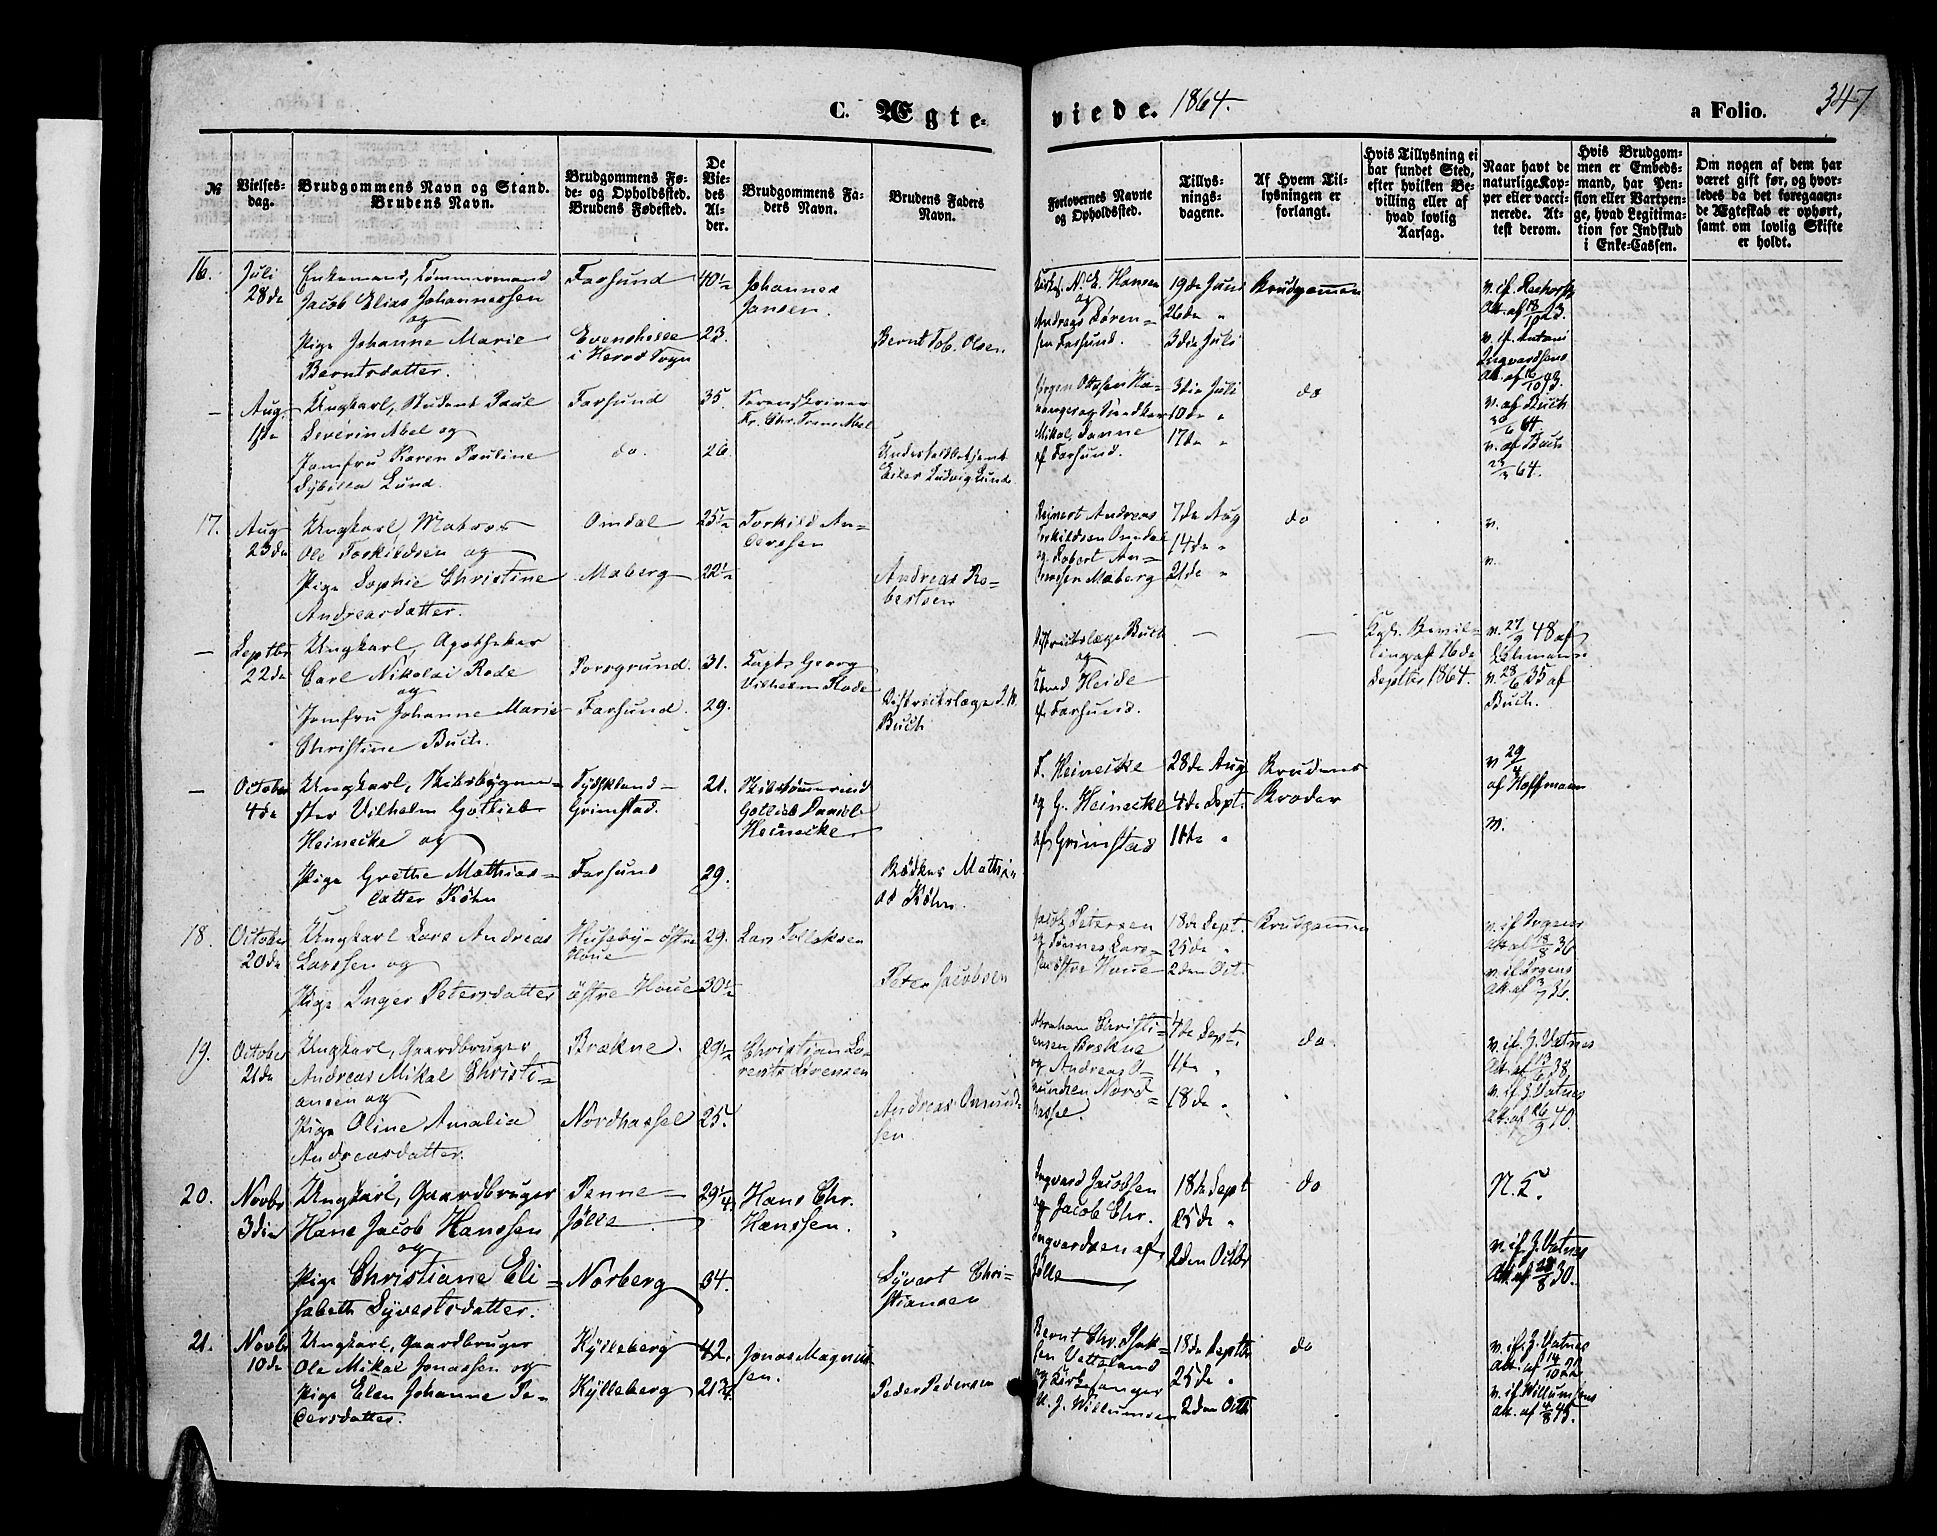 C. Ægte-
viede. 1864.
a Folio. 347
№
Vielses-
dag.
Brudgommens Navn og Stand.
Brudens Navn.
Brudgommens Fø-
de- og Opholdssted.
Brudens Fødested.
De
Vie-
des
Al-
der.
Brudgommens Fa-
ders Navn.
Brudens Faders
Navn.
Forlovernes Navne
og Opholdssted.
Tillys-
nings-
dagene.
Af Hvem Til-
lysningen er
forlangt.
Hvis Tillysning ei
har fundet Sted,
efter hvilken Be-
villing eller af
hvad lovlig
Aarsag.
Naar havt de
naturlige Kop-
per eller vacci-
nerede. At-
test derom.
Hvis Brudgom-
men er Embeds-
mand, har Pen-
sion eller Vartpen-
ge, hvad Legitima-
tion for Indskud
i Enke-Cassen.
Om nogen af dem har
været gift før, og hvor-
ledes da det foregaaen-
de Ægteskab er ophørt,
samt om lovlig Skifte
er holdt.
16.
Juli
28de
Enkemand, Tømmermand
Jacob Elias Johannessen
og
Pige Johanne Marie
Berntsdatter.
Farsund
i Herred Sogn
40½
23.
Johannes
Jansen.
Bernt Tob. Olsen
N. E. Hansen
og
Andreas Søren-
sen Farsund.
19de Juni
26de "
3die Juli
Brudgommen
Att. af 18/10 23.
v. if.
Ingvardsens
Att. af
-
Aug.
1ste
Ungkarl, Student Poul
Severin Abel og
Jomfru Karen Pauline
Sybilla Lund.
Farsund
do.
35.
26.
Sorenskriver
Fr. Chr. Abel
Undertoldbetjent
Eiler Ludvig Lund
Jørgen Ottesen
Mikal Sanne
af Farsund.
3die Juli
10de "
17de "
do
v. af Buch
64.
v. af Buch
64.
17.
Aug
23de
Ungkarl, Matros
Ole Torkildsen og
Pige Sophie Christine
Andreasdatter.
Omdal
Maberg
25½
22½
Torkild An-
derssen
Andreas Ro-
bertsen
Reinert Andreas
Torkildsen Omdal
og Robert An-
dreassen Maberg
7de Aug
14de "
21de "
do
v.
v.
-
Septbr
22de
Ungkarl, Apotheker
Carl Nikolai Rode
og
Jomfru Johanne Marie
Christine Buch.
Porsgrund.
Farsund.
31.
29.
Georg
Vilhelm Rode
Districtslæge
Buch
Districtslæge Buch
og
Heide
af Farsund.
-
-
Kgl. Bevil-
ling af 16de
Septbr 1864.
v. 27/9 48 af
Lehmann
v. 28/6 35 af
Buch.
-
October
4de
Ungkarl, Skibsbygme-
ster Vilhelm Gotlieb
Heinecke og
Pige Grethe Mathias-
datter Köhn
Tydskland -
Grimstad.
Farsund
21.
29.
Skibstømmermd
Gotlieb Daniel
Heinecke
Bødker Mathi-
as Köhn.
F. Heinecke
og G. Heinecke
af Grimstad
28de Aug
4de Sept.
11te "
Brudens
Broder
v 29/4
af Hoffmann
v.
18.
October
20de
Ungkarl Lars Andreas
Larssen og
Pige Inger Petersdatter
Huseby - østre
Houe
østre Houe
29.
30½
Lars Tollaksen
Peter Jacobsen
Jacob Petersen
og Tønnes Lars-
sen østre Houe
18de Sept.
25de "
2den Oct.
Brudgommen
Att. af 18/8 36
Att. af
19.
October
21de
Ungkarl, Gaardbruger
Andreas Mikal Christi-
ansen og
Pige Oline Amalia
Andreasdatter.
Brækne.
Nordhassel
29½
25.
Christian Lo-
rents Sørensen
Andreas Omund-
sen.
Abraham Christi-
ansen Brækne
og Andreas O-
mundsen Nord-
hassel.
4de Sept.
11te "
18de "
do
v. if. J. Vatnes
Att. af 13/6 38.
v. if. J. Vatnes
Att. af 26/9 40.
20.
Novbr
3die
Ungkarl, Gaardbruger
Hans Jacob Hanssen
og
Pige Christiane Eli-
sabeth Syvertsdatter.
Penne -
Jølle
Norberg
29¼
34.
Hans Chr.
Hanssen.
Syvert Chri-
stiansen
Ingvard Jacobsen
og Jacob Chr.
Ingvardsen af
Jølle
18de Sept
25de "
2den Octbr
do
v. if. J. Vatnes
Att. af 28/8 30.
21.
Novbr
10de
Ungkarl, Gaardbruger
Ole Mikal Jonassen og
Pige Elen Johanne Pe-
dersdatter.
Kylleberg
Kylleberg
42.
21¾
Jonas Magnus-
sen.
Peder Pedersen
Bernt Chr. Isak-
sen Vetteland
og Kirkesanger
M. J. Willumsen
18de Septbr
25de "
2den Octbr
do
v. if. J. Vatnes
Att. af 14/10 22
v. if. Willumsens
Att. af 4/8 45.